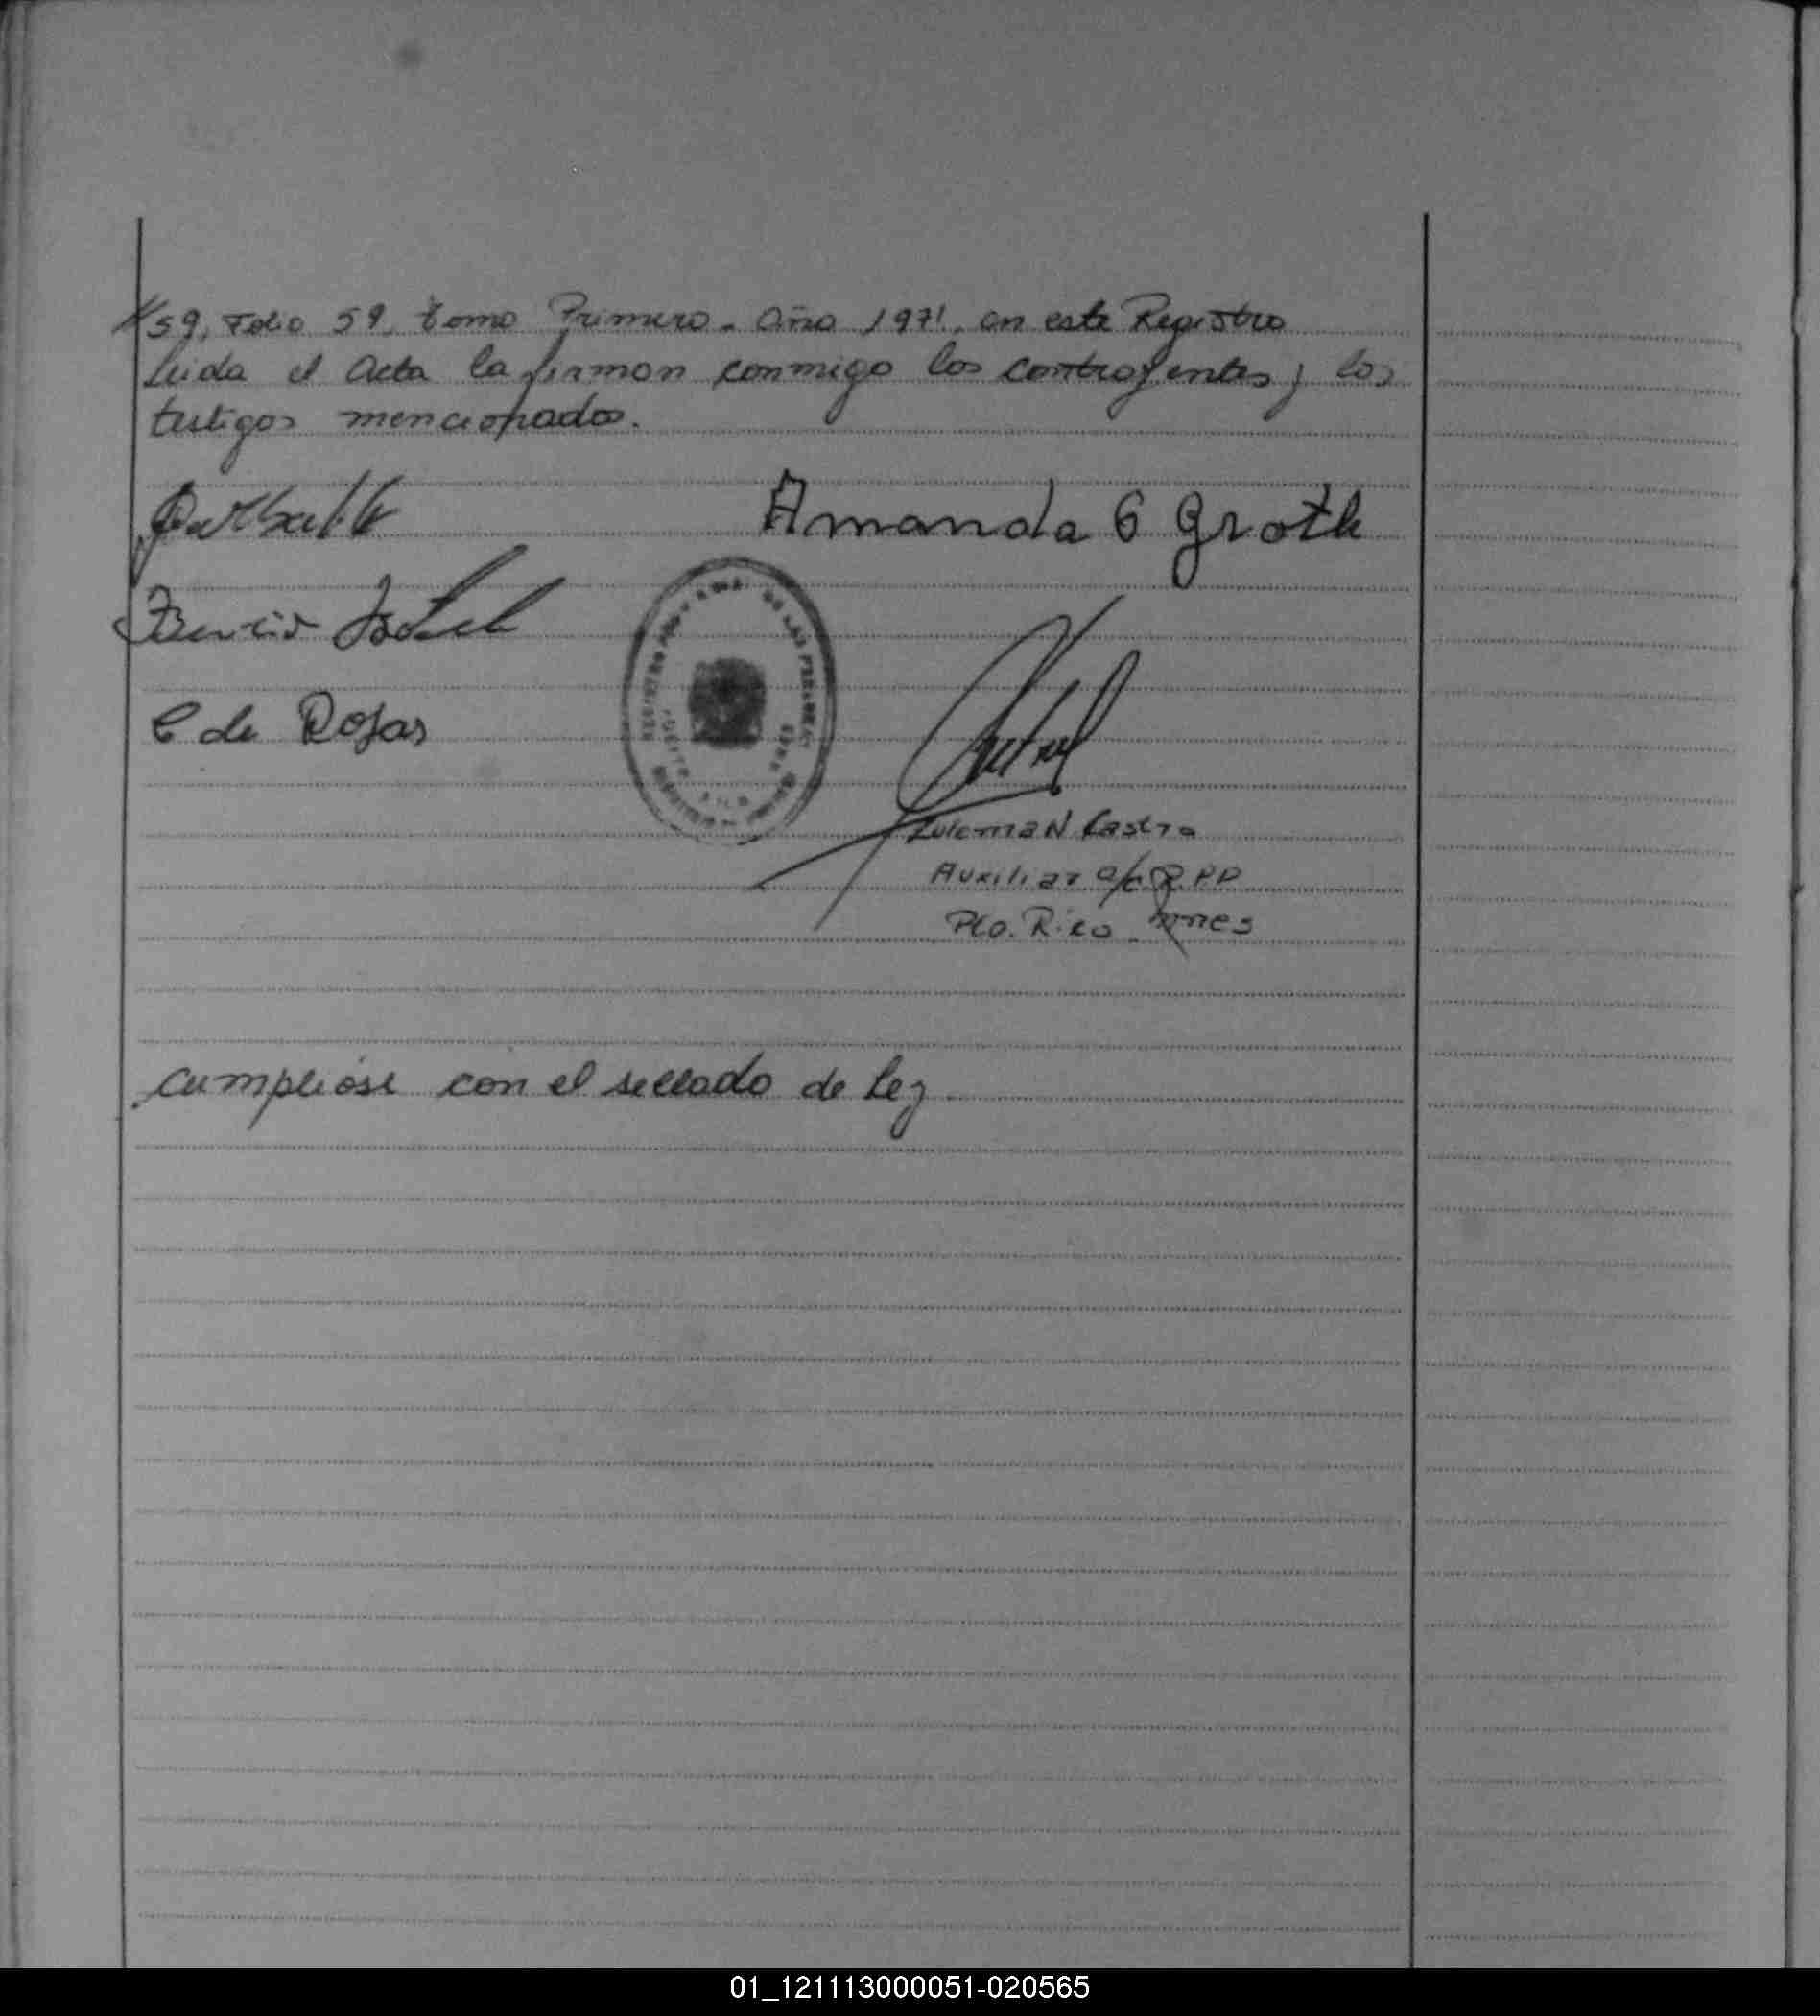 //59, Folio 59, tomo Primero. Año 1971, en este Registro
Leida el Acta la firman conmigo los contrayentes y los
testigos mencionados.
Amanda G Groth
C de Rojas
REGISTRO DE LAS PERSONAS
Zulema N Castro
Auxiliar a/c R.P.P
Pto. Rico Mnes
Cumplióse con el sellado de Ley
01_121113000051-020565